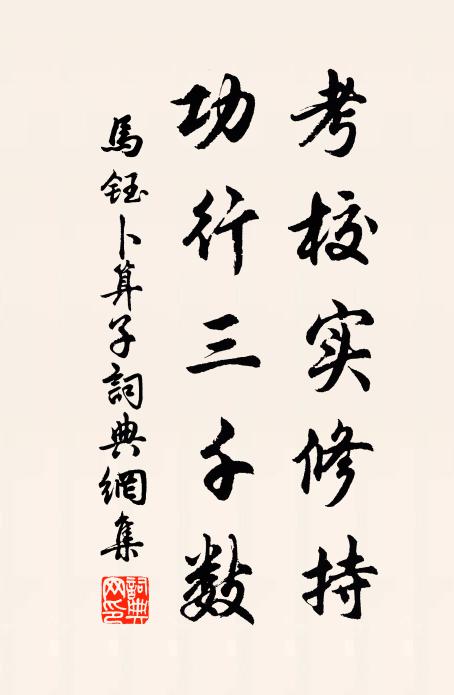 考校实修持
功行三千数
馬鈺卜算子詞典網集
詞典网印